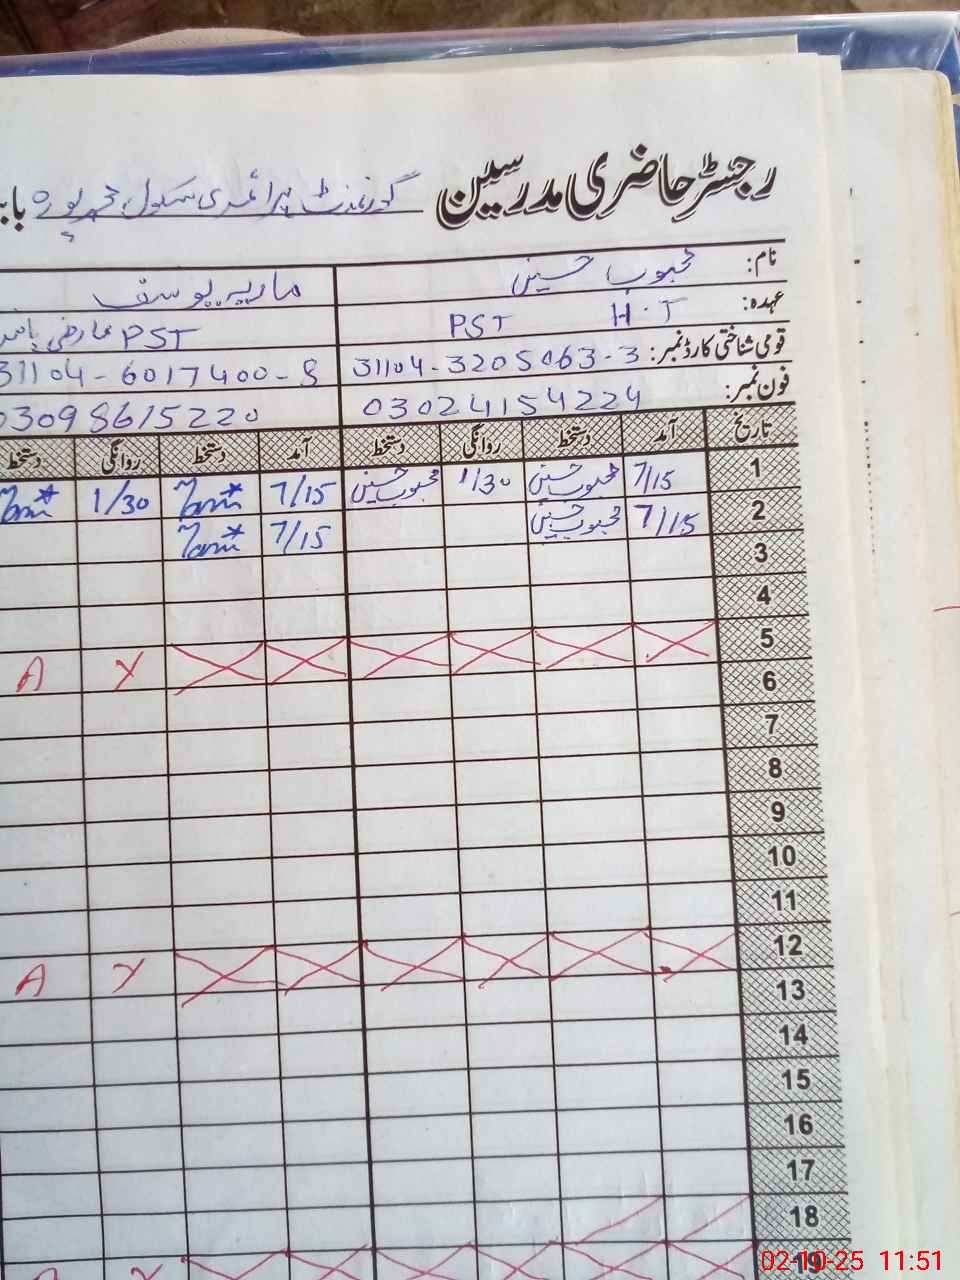 رجسٹر حاضری مدرسین گورنمنٹ پرائمری سکول
نام: محبوب حسین ماریہ یوسف
عہدہ: H.T PST PST عارضی
قومی شناختی کارڈ نمبر: 31104-3205063-3 31104-6017400-8
فون نمبر: 03024154224 03098615220
تاریخ آمد دستخط روانگی دستخط آمد دستخط روانگی دستخط
1 7/15 محبوب حسین 1/30 محبوب حسین 7/15 1/30
2 7/15 محبوب حسین 7/15
3
4
5 Y A
6
7
8
9
10
11
12 Y A
13
14
15
16
17
18
19
02-10-25 11:51